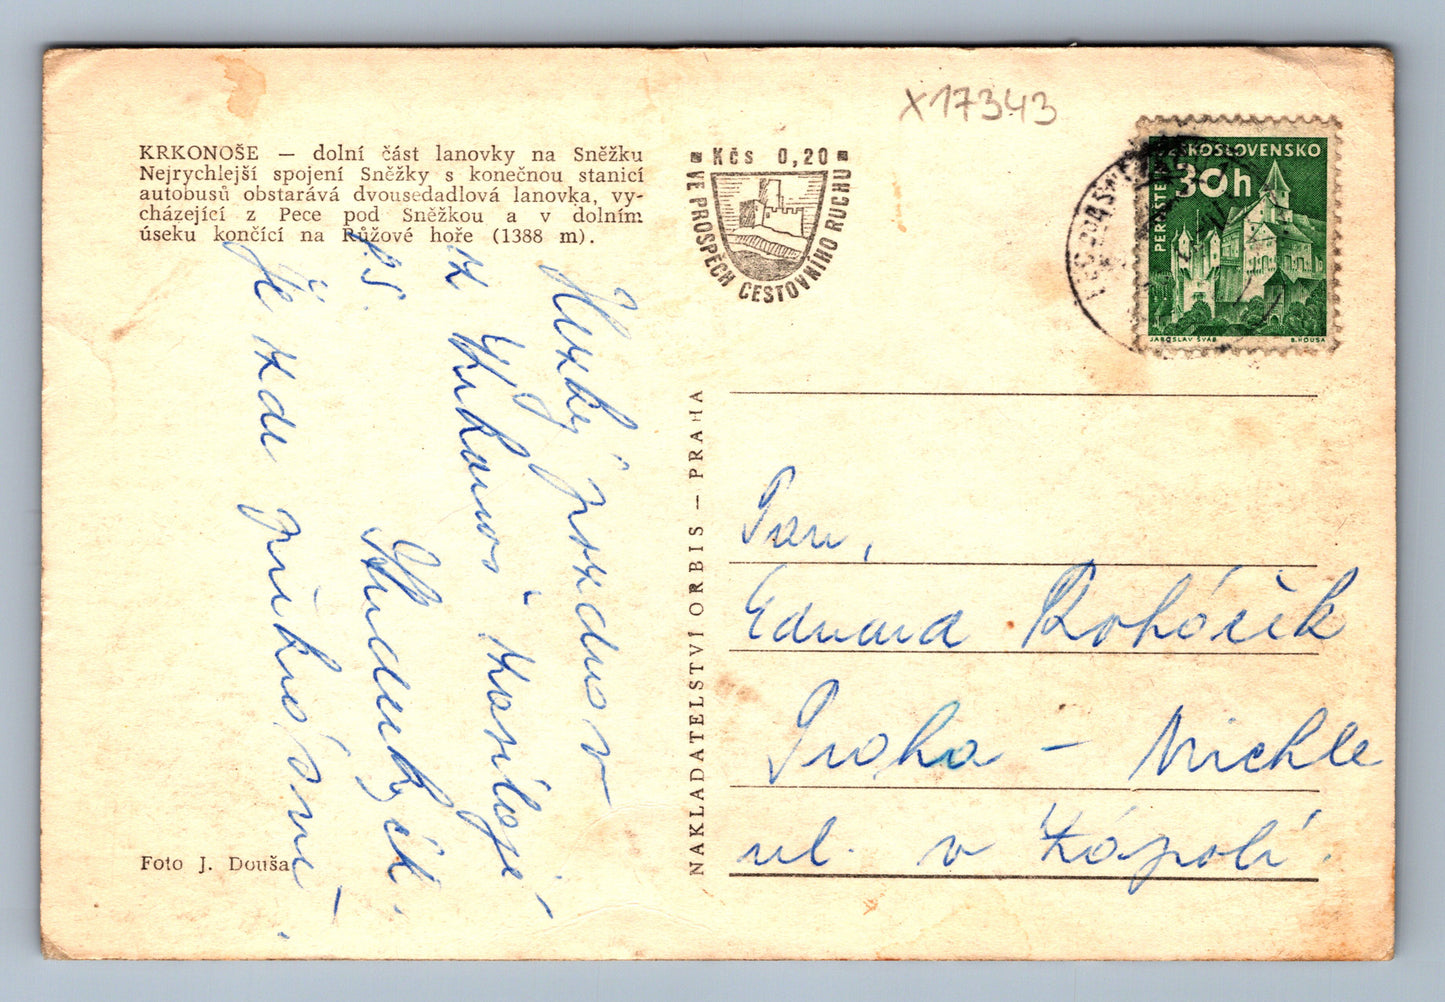 X17343
KRKONOŠE — dolní část lanovky na Sněžku
Nejrychlejší spojení Sněžky s konečnou stanicí
autobusů obstarává dvousedadlová lanovka, vy-
cházející z Pece pod Sněžkou a v dolním
úseku končící na Růžové hoře (1388 m).
Kčs 0,20
VE PROSPĚCH CESTOVNÍHO RUCHU
ČESKOSLOVENSKO
30h
PERNŠTEJN
JAROSLAV ŠVÁB
B. HOUSA
Hezký pozdrav
z Krkonoš zasílají
Studenkyčik.
P.S.
Je zde
NAKLADATELSTVÍ ORBIS — PRAHA
Pan,
Eduard Roháčik
Praha - Michle
ul. v Zápolí.
Foto J. Douša